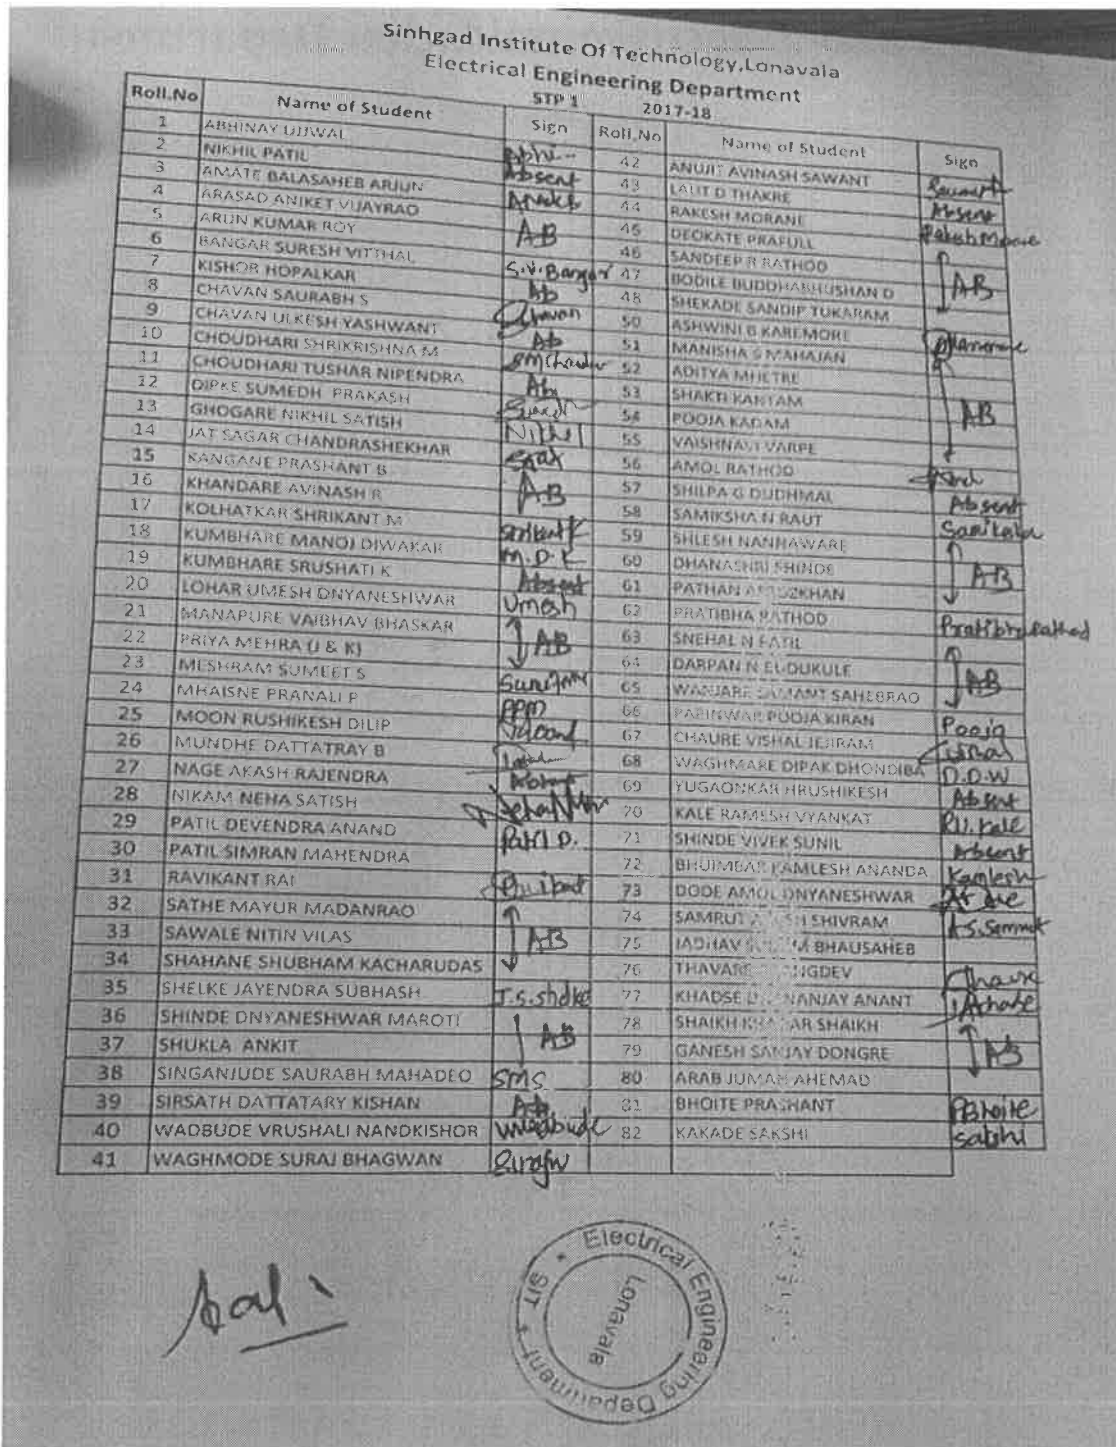 Sinhgad Institute Of Technology,Lonavala
Electrical Engineering Department
STP 1 2017-18
Roll.No Name of Student Sign Roll.No Name of Student Sign
1 ABHINAY UJJWAL Abhi-- 42 ANUJIT AVINASH SAWANT
2 NIKHIL PATIL Absent 43 LALIT D THAKRE Absent
3 AMATE BALASAHEB ARJUN 44 RAKESH MORANE
4 ARASAD ANIKET VIJAYRAO AB 45 DEOKATE PRAFULL AB
5 ARUN KUMAR ROY 46 SANDEEP R RATHOD
6 BANGAR SURESH VITTHAL S.V.Bangar 47 BODILE BUDDHABHUSHAN D
7 KISHOR HOPALKAR Ab 48 SHEKADE SANDIP TUKARAM
8 CHAVAN SAURABH S Chavan 50 ASHWINI B KAREMORE
9 CHAVAN ULKESH YASHWANT Ab 51 MANISHA S MAHAJAN AB
10 CHOUDHARI SHRIKRISHNA M 52 ADITYA MHETRE
11 CHOUDHARI TUSHAR NIPENDRA Ab 53 SHAKTI KANTAM
12 DIPKE SUMEDH PRAKASH 54 POOJA KADAM
13 GHOGARE NIKHIL SATISH Nikhel 55 VAISHNAVI VARPE
14 JAT SAGAR CHANDRASHEKHAR 56 AMOL RATHOD
15 KANGANE PRASHANT B AB 57 SHILPA G DUDHMAL Absent
16 KHANDARE AVINASH R 58 SAMIKSHA N RAUT
17 KOLHATKAR SHRIKANT M 59 SHLESH NANNAWARE AB
18 KUMBHARE MANOJ DIWAKAR M.D.K 60 DHANASHRI SHINDE
19 KUMBHARE SRUSHATI K Absent 61 PATHAN
20 LOHAR UMESH DNYANESHWAR Umesh 62 PRATIBHA RATHOD Pratibha Rathod
21 MANAPURE VAIBHAV BHASKAR AB 63 SNEHAL N PATIL AB
22 PRIYA MEHRA (J & K) 64 DARPAN N
23 MESHRAM SUMEET S 65 WANJARE SAMANT SAHEBRAO
24 MHAISNE PRANALI P PPM 66 POOJA KIRAN Pooja
25 MOON RUSHIKESH DILIP 67 CHAURE VISHAL JEJIRAM
26 MUNDHE DATTATRAY B 68 WAGHMARE DIPAK DHONDIBA D.D.W
27 NAGE AKASH RAJENDRA 69 YUGAONKAR HRUSHIKESH Absent
28 NIKAM NEHA SATISH 70 KALE RAMESH VYANKAT R.V.Kale
29 PATIL DEVENDRA ANAND Patil D. 71 SHINDE VIVEK SUNIL Absent
30 PATIL SIMRAN MAHENDRA 72 BHUIMBAR KAMLESH ANANDA Kamlesh
31 RAVIKANT RAI 73 DODE AMOL DNYANESHWAR
32 SATHE MAYUR MADANRAO AB 74 SHIVRAM
33 SAWALE NITIN VILAS 75 JADHAV BHAUSAHEB
34 SHAHANE SHUBHAM KACHARUDAS 76 THAVARE
35 SHELKE JAYENDRA SUBHASH J.S.shelke 77 KHADSE ANANT
36 SHINDE DNYANESHWAR MAROTI AB 78 SHAIKH SHAIKH AB
37 SHUKLA ANKIT 79 GANESH SANJAY DONGRE
38 SINGANJUDE SAURABH MAHADEO SMS 80 ARAB JUMAH AHEMAD
39 SIRSATH DATTATARY KISHAN Ab 81 BHOITE PRASHANT PBhoite
40 WADBUDE VRUSHALI NANDKISHOR 82 KAKADE SAKSHI sakshi
41 WAGHMODE SURAJ BHAGWAN
Electrical Engineering Department * SIT *
Lonavala